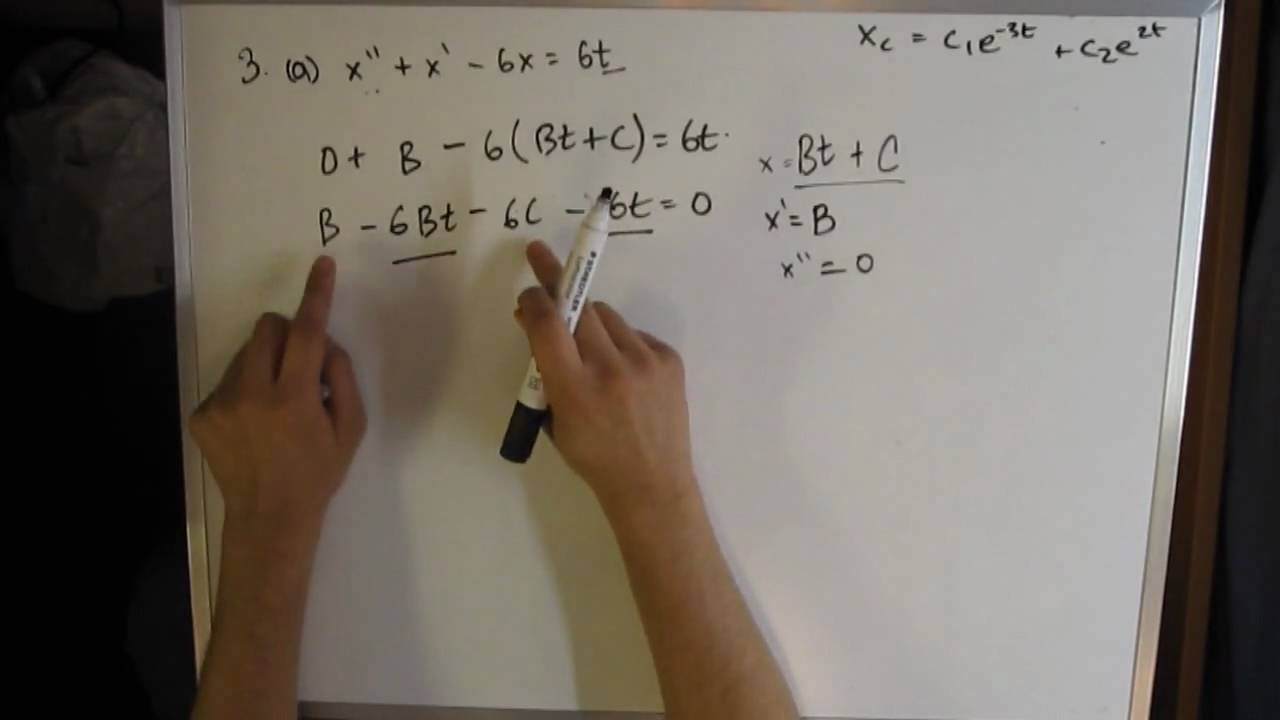 3. (a) x'' + x' - 6x = 6t
x_c = c₁e^{-3t} + c₂e^{2t}
0 + B - 6(Bt + C) = 6t.
B - 6Bt - 6C - 6t = 0
x = Bt + C
x' = B
x'' = 0
STAEDTLER